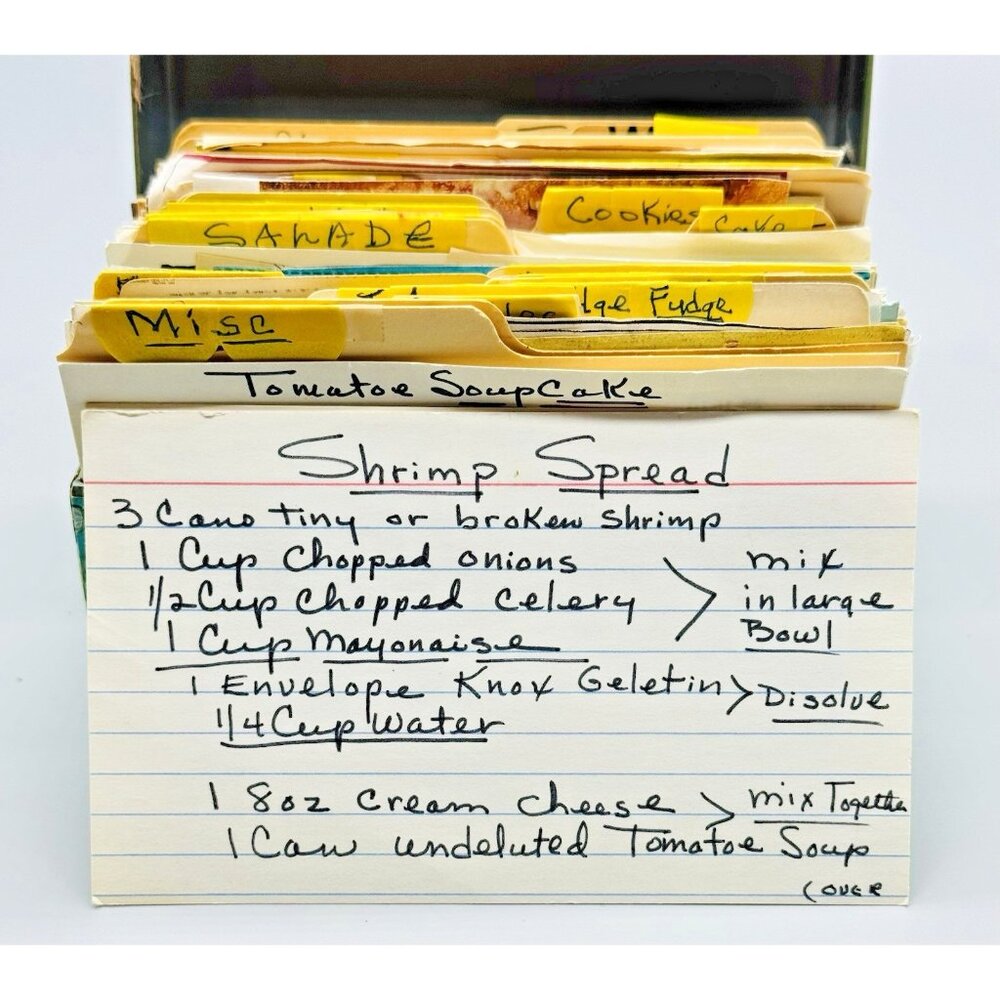 SALADE
Cookies
Cake
lge Fudge
Misc
Tomatoe Soup Cake
Shrimp Spread
3 Cans tiny or broken shrimp
1 Cup Chopped onions
1/2 Cup Chopped celery
1 Cup Mayonaise
mix
in large
Bowl
1 Envelope Knox Geletin
1/4 Cup Water
Disolve
1 8oz Cream cheese
mix Together
1 Can undeluted Tomatoe Soup
(over